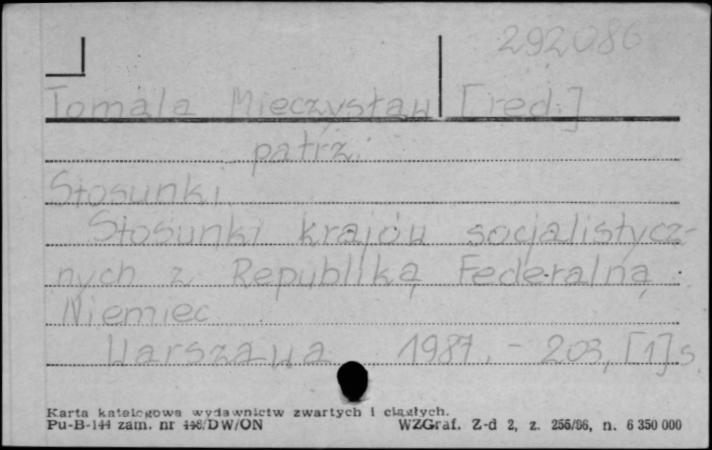 292086
Tomala Mieczysław [red.]
patrz:
Stosunki
Stosunki krajów socjalistycz-
nych z Republiką Federalną
Niemiec
Warszawa 1987. - 203, [1] s.
Karta katalogowa wydawnictw zwartych i ciągłych.
Pu-B-144 zam. nr 448/DW/ON WZGraf. Z-d 2, z. 255/86, n. 6 350 000